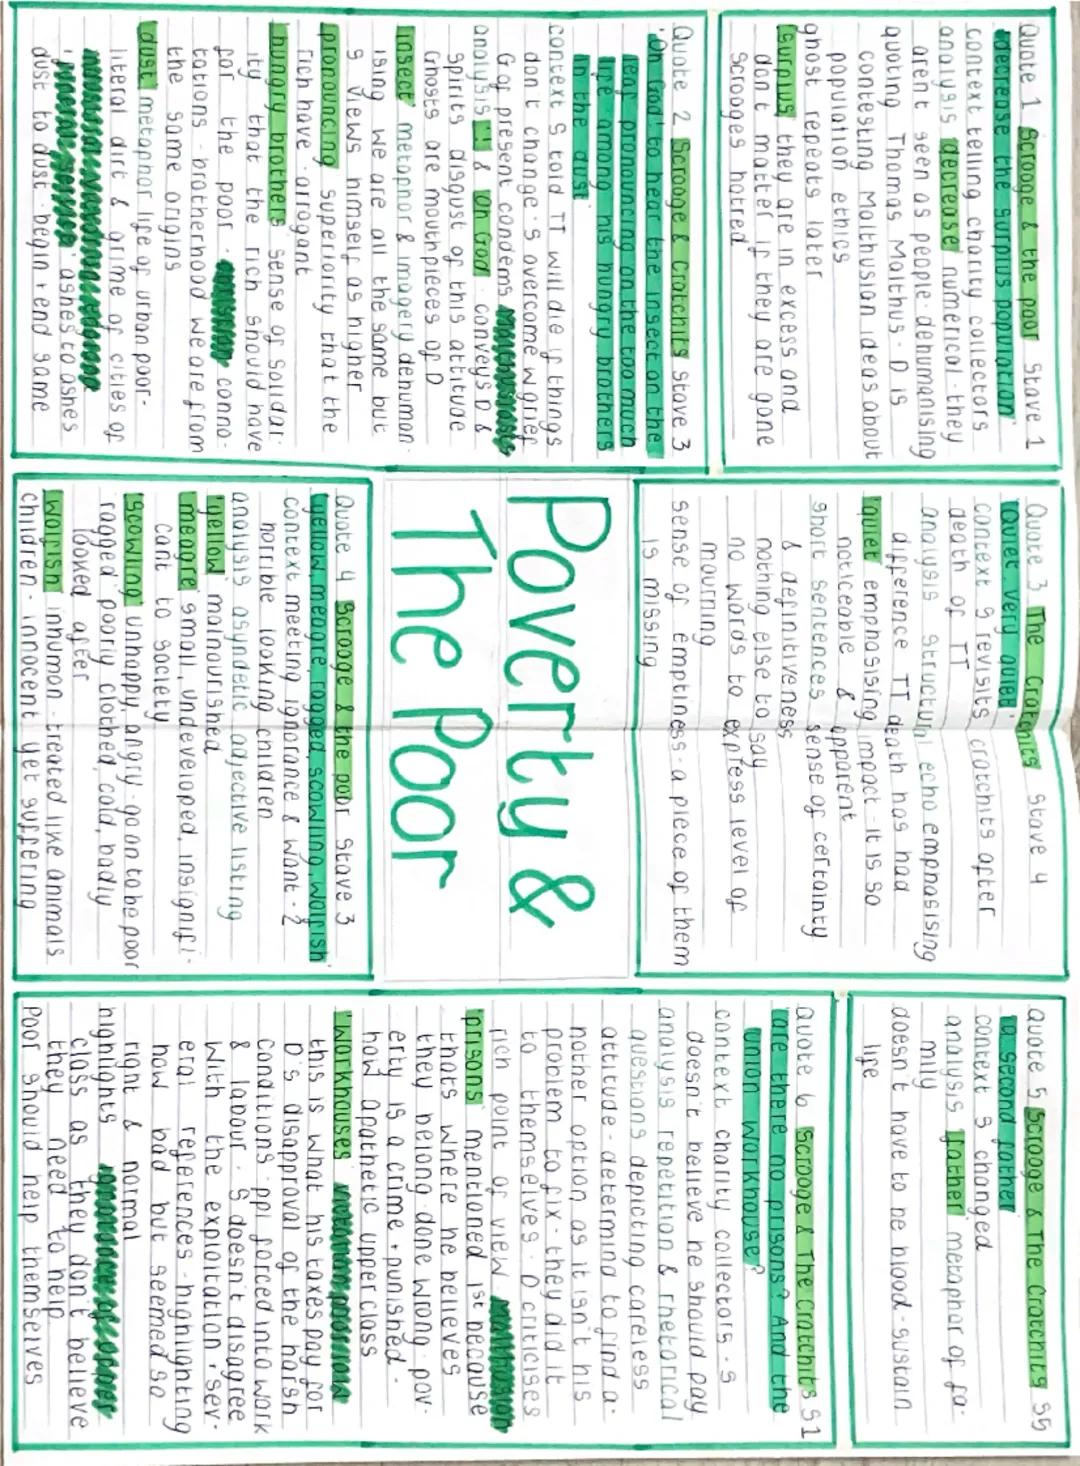 Quote 1 Scrooge & the poor Stave 1
'decrease the surplus population'
context telling charity collectors
analysis decrease numerical - they
arent seen as people - dehumanising
quoting Thomas Malthus - D is
contesting Malthusian ideas about
population ethics
ghost repeats later
surplus they are in excess and
don't matter if they are gone
Scrooges hatred
Quote 2 Scrooge & Cratchits Stave 3
'Oh God! to hear the insect on the
leaf pronouncing on the too much
life among his hungry brothers
in the dust'
context S told TT will die if things
don't change - S overcome w grief
Gof present condems
analysis '!' & 'Oh God' - conveys D &
spirits disgust of this attitude
Ghosts are mouthpieces of D
'insect' metaphor & imagery dehuman-
ising we are all the same but
S views himself as higher
pronouncing superiority that the
rich have - arrogant
'hungry brothers' sense of solidar-
ity that the rich should have
for the poor - conno-
tations - brotherhood we are from
the same origins
dust metaphor life of urban poor-
literal dirt & grime of cities of
'ashes to ashes
dust to dust' - begin & end same
Quote 3 The Cratchits Stave 4
'quiet. very quiet'
context S revisits cratchits after
death of TT
analysis structural echo emphasising
difference TT death has had
'quiet' emphasising impact - it is so
noticeable & apparent
short sentences sense of certainty
& definitiveness
nothing else to say
no words to express level of
mourning
sense of emptiness - a piece of them
is missing
Poverty &
The Poor
Quote 4 Scrooge & the poor Stave 3
'yellow, meagre, ragged, scowling, wolfish'
context meeting ignorance & want - 2
horrible looking children
analysis asyndetic adjective listing
'yellow' malnourished
'meagre' small, undeveloped, insignifi-
cant to society
'scowling' unhappy, angry - go on to be poor
'ragged' poorly clothed, cold, badly
looked after
'wolfish' inhuman - treated like animals
children - innocent yet suffering
Quote 5 Scrooge & The Cratchits S5
'a second father'
context S changed
analysis 'father' metaphor of fa-
mily
doesn't have to be blood - sustain
life
Quote 6 Scrooge & The Cratchits S1
'are there no prisons? And the
union workhouse?'
context charity collectors - S
doesn't believe he should pay
analysis repetition & rhetorical
questions depicting careless
attitude - determind to find a-
nother option as it isn't his
problem to fix - they did it
to themselves - D criticises
rich point of view
'prisons' mentioned 1st because
thats where he believes
they belong - done wrong - pov-
erty is a crime & punished -
how apathetic upper class
'workhouses'
this is what his taxes pay for
D's disapproval of the harsh
conditions - ppl forced into work
& labour - S doesn't disagree
with the exploitation - sev-
eral references - highlighting
how bad but seemed so
right & normal
highlights
class as they don't believe
they need to help
Poor should help themselves